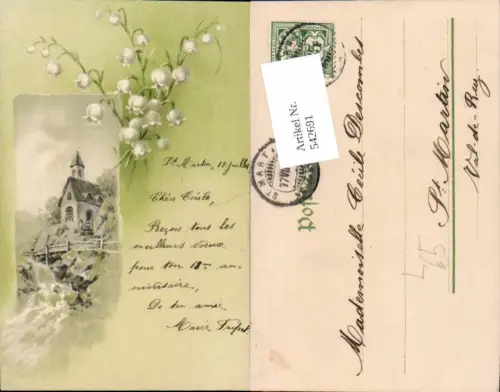 St. Martin, 17 Juillet
Chère Cécile,
Reçois tous les
meilleurs voeux
pour ton 18me an-
niversaire,
De ton amie
Marie
Artikel Nr.
542691
Post
Mademoiselle Cécile Descombes
St. Martin
Val-de-Ruz.
65